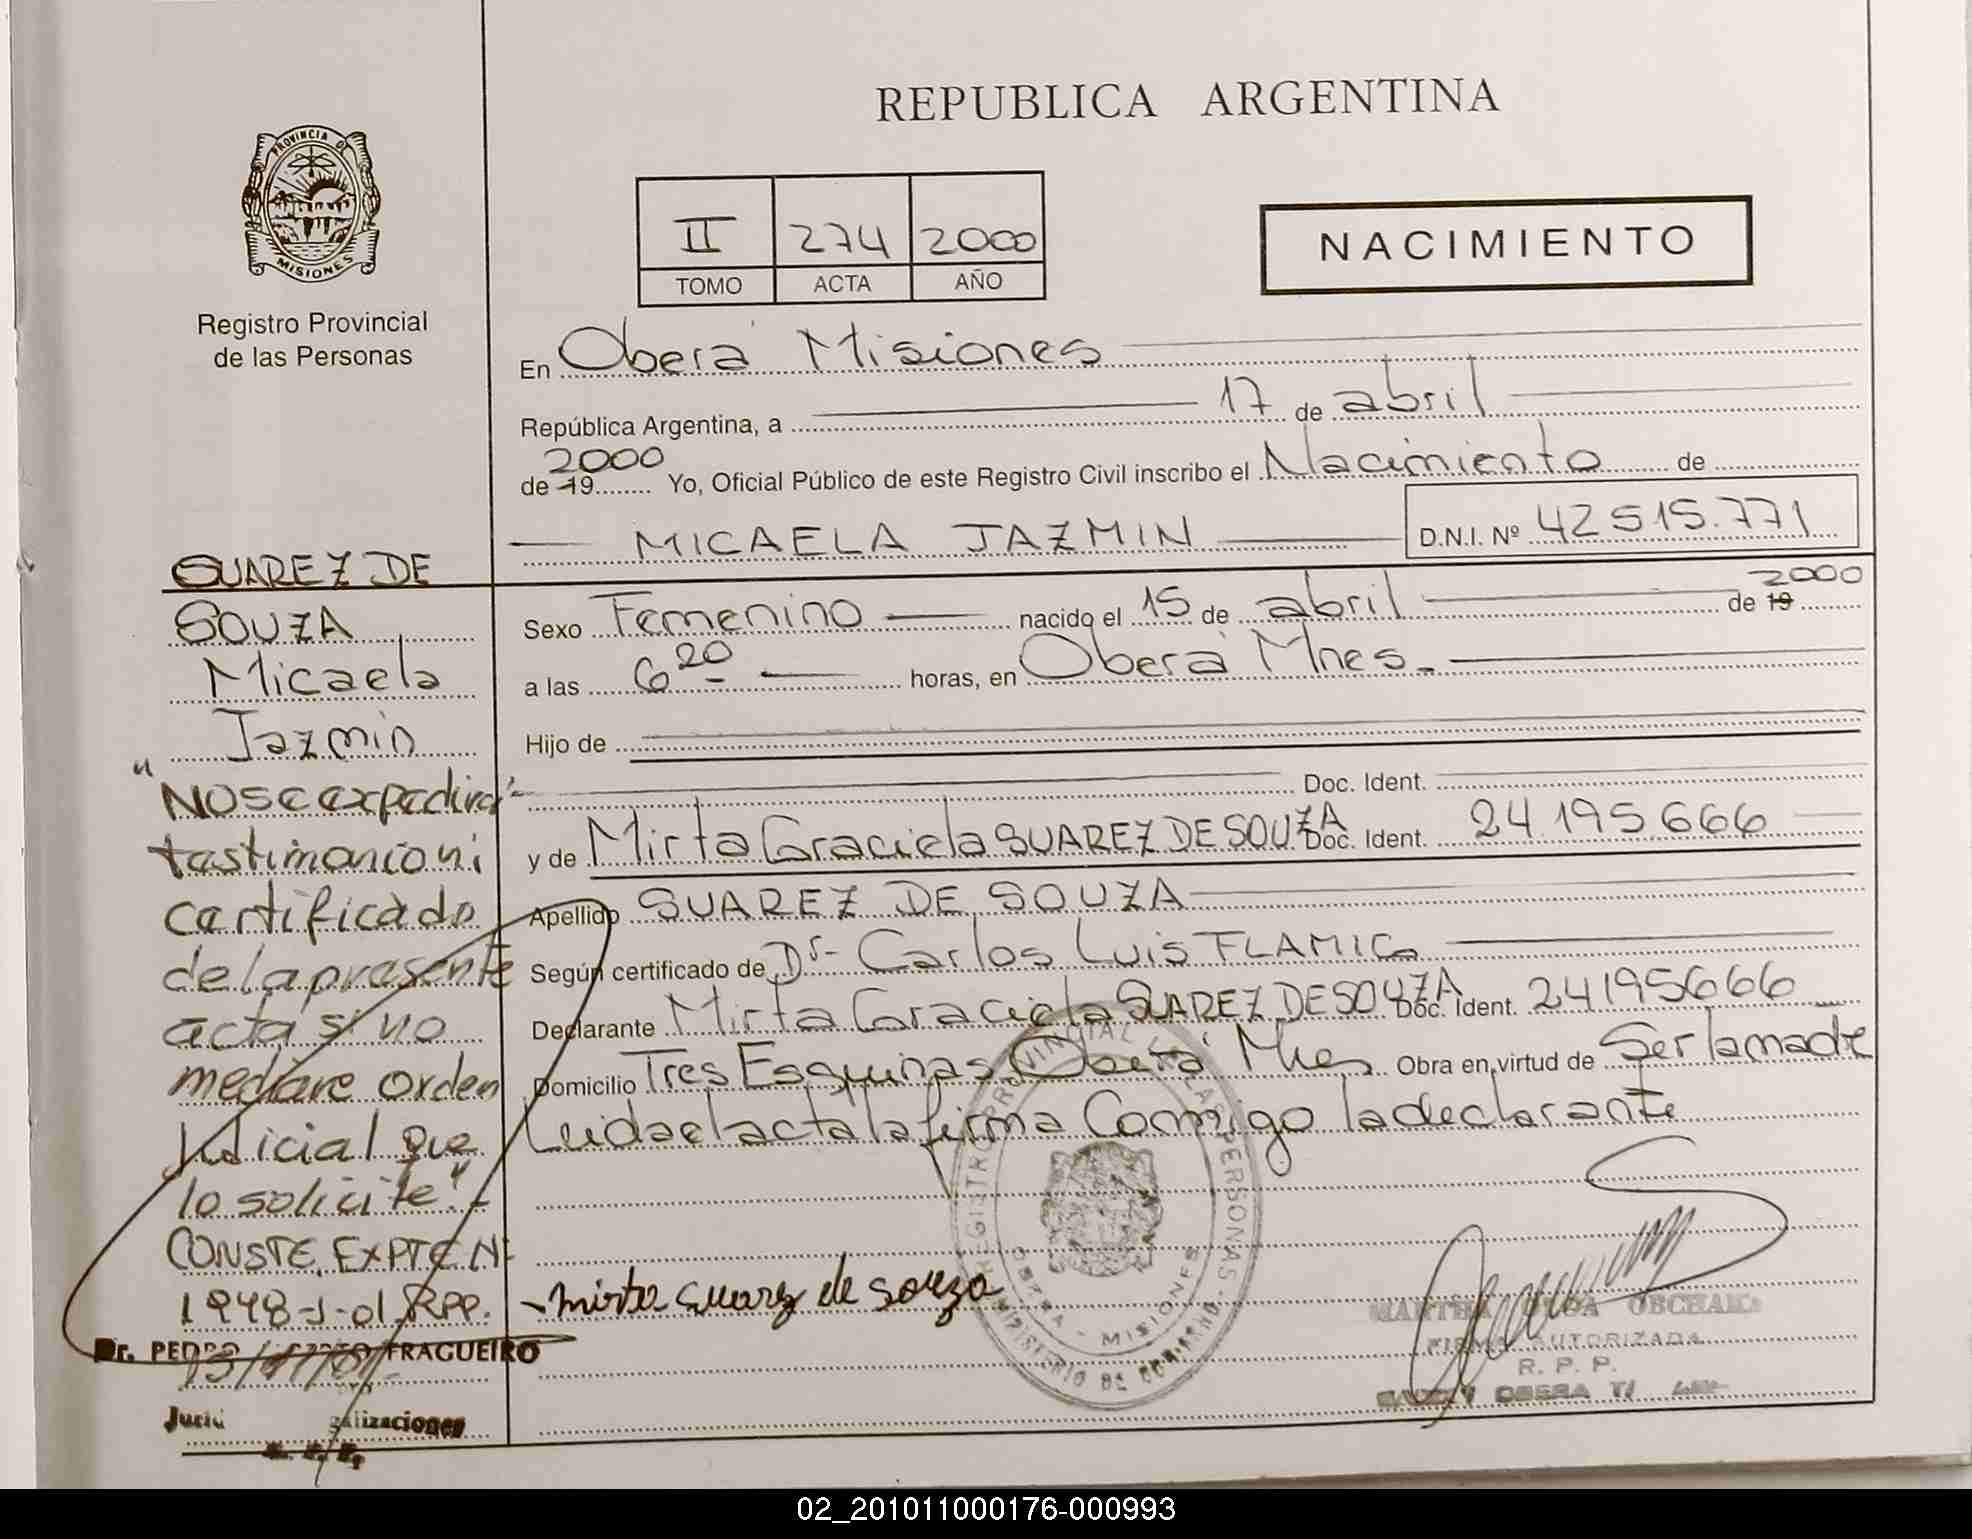 REPUBLICA ARGENTINA
PROVINCIA DE
MISIONES
Registro Provincial
de las Personas
II 274 2000
TOMO ACTA AÑO
NACIMIENTO
En Oberá Misiones
República Argentina, a 17 de abril
2000
de 19 Yo, Oficial Público de este Registro Civil inscribo el Nacimiento de
MICAELA JAZMIN D.N.I. Nº 42515.771
Sexo Femenino nacido el 15 de abril de 19 2000
a las 6 20 horas, en Oberá Mnes.
Hijo de
Doc. Ident.
y de Mirta Graciela SUAREZ DE SOUZA Doc. Ident. 24.195.666
Apellido SUAREZ DE SOUZA
Según certificado de Dr. Carlos Luis
Declarante Mirta Graciela SUAREZ DE SOUZA Doc. Ident. 24195666
Domicilio Tres Esquinas Oberá Mnes Obra en virtud de Ser la madre
Leida el acta la firma Conmigo la declarante
SUAREZ DE
SOUZA
Micaela
Jazmin
"NO se expedira
testimonio ni
certificado
de la presente
acta si no
mediare orden
Judicial que
lo solicite".-
CONSTE. EXPTE Nº
1948-J-01.RPP.
Dr. PEDRO FRAGUEIRO
mirta Suarez de souza
REGISTRO PROVINCIAL DE LAS PERSONAS
OBERA - MISIONES
MINISTERIO DE GOBIERNO
MARTHA OLGA
FIRMA AUTORIZADA
R. P. P.
02_201011000176-000993